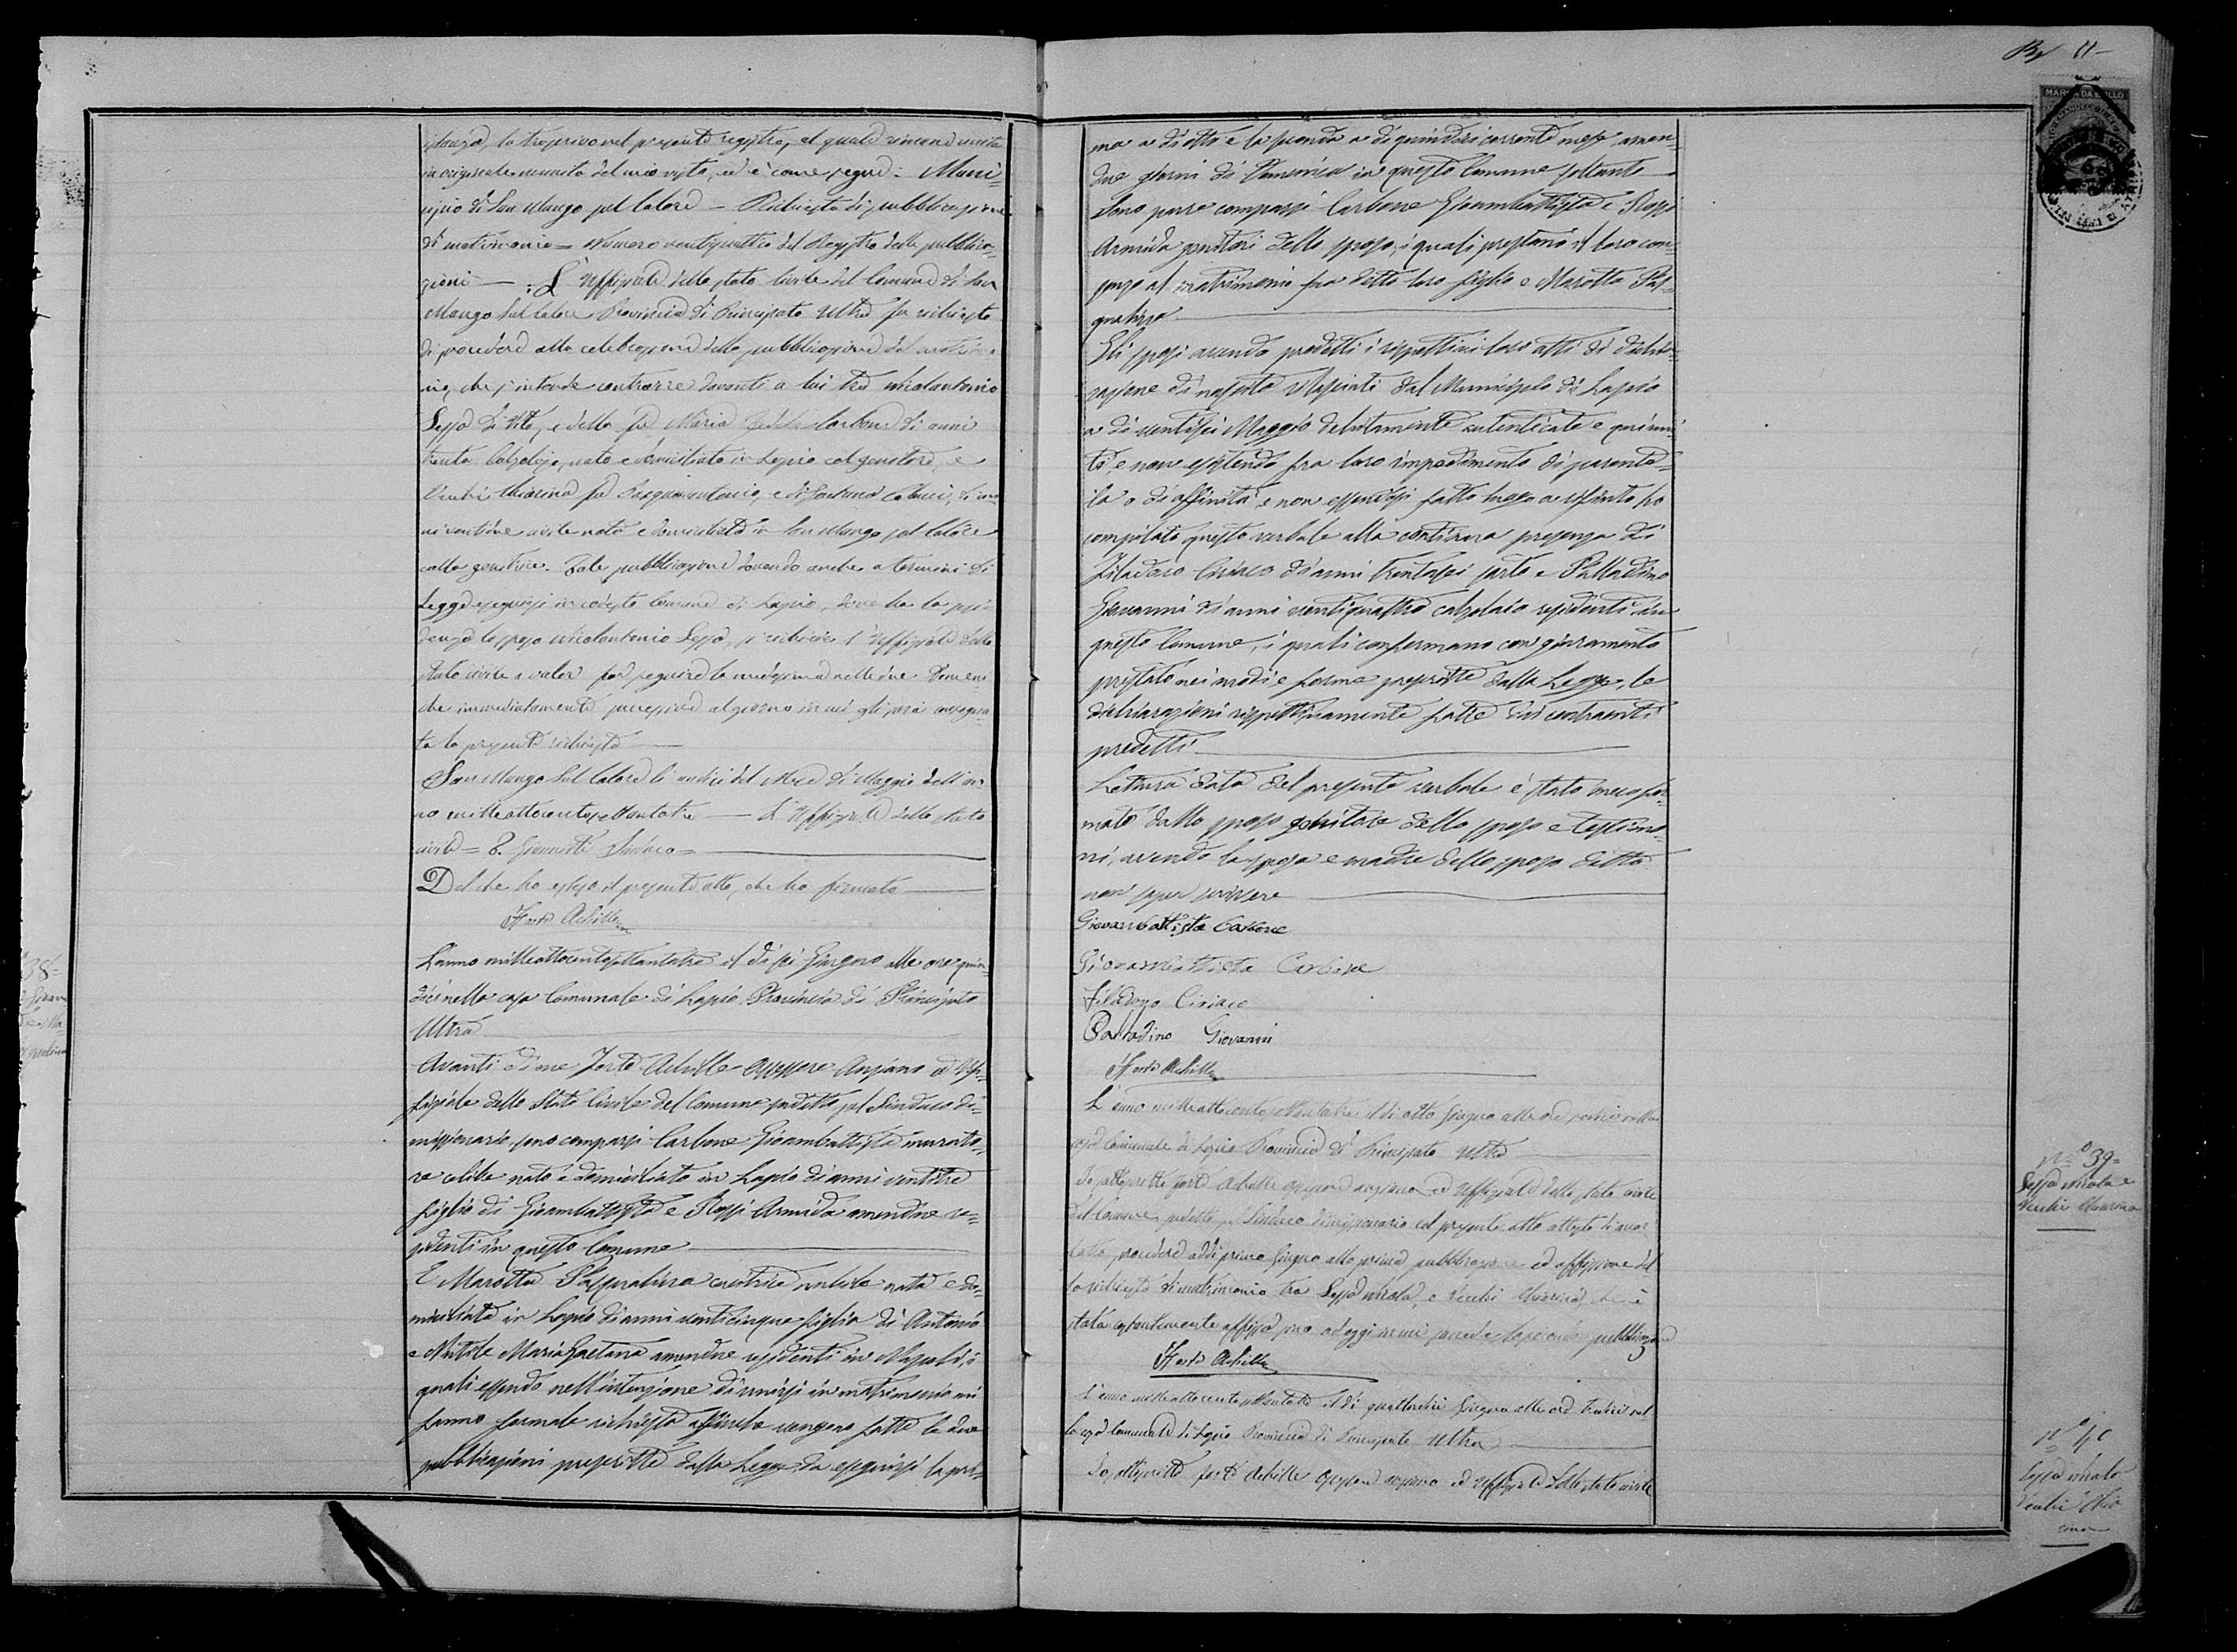 istanza, la trascrivo nel presente registro, al quale rimane unita
in originale munita del mio visto, ed è come segue = Muni-
cipio di San Mango sul Calore — Richiesta di pubblicazione
di matrimonio = Numero ventiquattro del Registro delle pubblica-
zioni — L'Uffiziale dello stato civile del Comune di San
Mango sul Calore Provincia di Principato Ultra fu richiesto
di procedere alla celebrazione della pubblicazione del matrimo-
nio, che s'intende contrarre davanti a lui tra Nicolantonio
Seppa di Vito, e della fu Maria Carbone di anni
trenta Calzolajo, nato e domiciliato in Lapio col genitore, e
Chiarina fu Pasquantonio, e di Gaetana
nubile nata e domiciliata in San Mango sul Calore
colla genitrice. Tale pubblicazione dovendo anche a termini di
Legge eseguirsi in codesto Comune di Lapio, dove ha la resi-
denza lo sposo Nicolantonio Seppa, si richiede l'Uffiziale dello
stato civile a voler far seguire la medesima nelle due Domeni-
che immediatamente successive al giorno in cui gli sarà consegna-
ta la presente richiesta
San Mango sul Calore li undici del Mese di Maggio dell'an-
no mille ottocento settantatre — L'Uffiziale dello stato
civile = Sindaco =
Del che ho esteso il presente atto, che ho firmato
Forte Achille
38=
L'anno milleottocentosettantatre il dì sei Giugno alle ore quin-
dici nella casa Comunale di Lapio Provincia di Principato
Ultra
Avanti di me Forte Achille Assessore Anziano ed Uf-
fiziale dello Stato Civile del Comune suddetto pel Sindaco di-
missionario, sono comparsi Carbone Giambattista murato-
re celibe nato e domiciliato in Lapio di anni ventitre
figlio di Giambattista e Rossi Armida amendue re-
sidenti in questo Comune
E Marotta Pasqualina cucitrice nubile nata e do-
miciliata in Lapio di anni venticinque figlia di Antonio
e Maria Gaetana amendue residenti in Napoli, i
quali essendo nell'intenzione di unirsi in matrimonio mi
fanno formale richiesta affinchè vengano fatte le due
pubblicazioni prescritte dalla Legge, da eseguirsi la pri-
11
MARCA DA BOLLO
ma a dì otto e la seconda a dì quindici corrente mese amen-
due giorni di Domenica in questo Comune soltanto
Sono pure comparsi Carbone Giambattista e Rossi
Armida genitori dello sposo, i quali prestano il loro con-
senso al matrimonio fra detto loro figlio e Marotta Pas-
qualina
Gli sposi avendo prodotti i rispettivi loro atti di dichia-
razione di nascita rilasciati dal Municipio di Lapio
a dì ventisei Maggio debitamente autenticate e quiuni-
te, e non esistendo fra loro impedimento di parente-
la o di affinità, e non essendosi fatto luogo a rifiuto ho
compilato questo verbale alla continua presenza di
Filadoro Ciriaco di anni trentasei sarto e Palladino
Giovanni di anni ventiquattro calzolaio residenti in
questo Comune, i quali confermano con giuramento
prestato nei modi e forme prescritte dalla Legge, le
dichiarazioni rispettivamente fatte dai contraenti
predetti
Lettura data del presente verbale è stato meco fir-
mato dallo sposo genitore dello sposo e testimo-
ni, avendo la sposa e madre dello sposo detto
non saper scrivere
Giovanbattista Carbone
Giovambattista Carbone
Filadoro Ciriaco
Palladino Giovanni
Forte Achille
N.o 39=
Seppa Nicola e
Chiarina
L'anno mille ottocento settantatre il dì otto Giugno alle ore nella
casa Comunale di Lapio Provincia di Principato Ultra
Io sottoscritto Forte Achille assessore anziano ed Uffiziale dello stato civile
del Comune suddetto pel Sindaco dimissionario col presente atto attesto di aver
fatto procedere addì primo Giugno alla prima pubblicazione ed affissione del-
la richiesta di matrimonio tra Seppa Nicola, e Chiarina, che è
stata costantemente affissa sino ad oggi in cui succede la seconda pubblicazione
Forte Achille
N.o 40
Seppa Nicola
Chia-
rina
L'anno mille ottocento settantatre il dì quattordici Giugno alle ore tredici nel-
la casa Comunale di Lapio Provincia di Principato Ultra
Io sottoscritto Forte Achille Assessore anziano ed Uffiziale dello stato civile